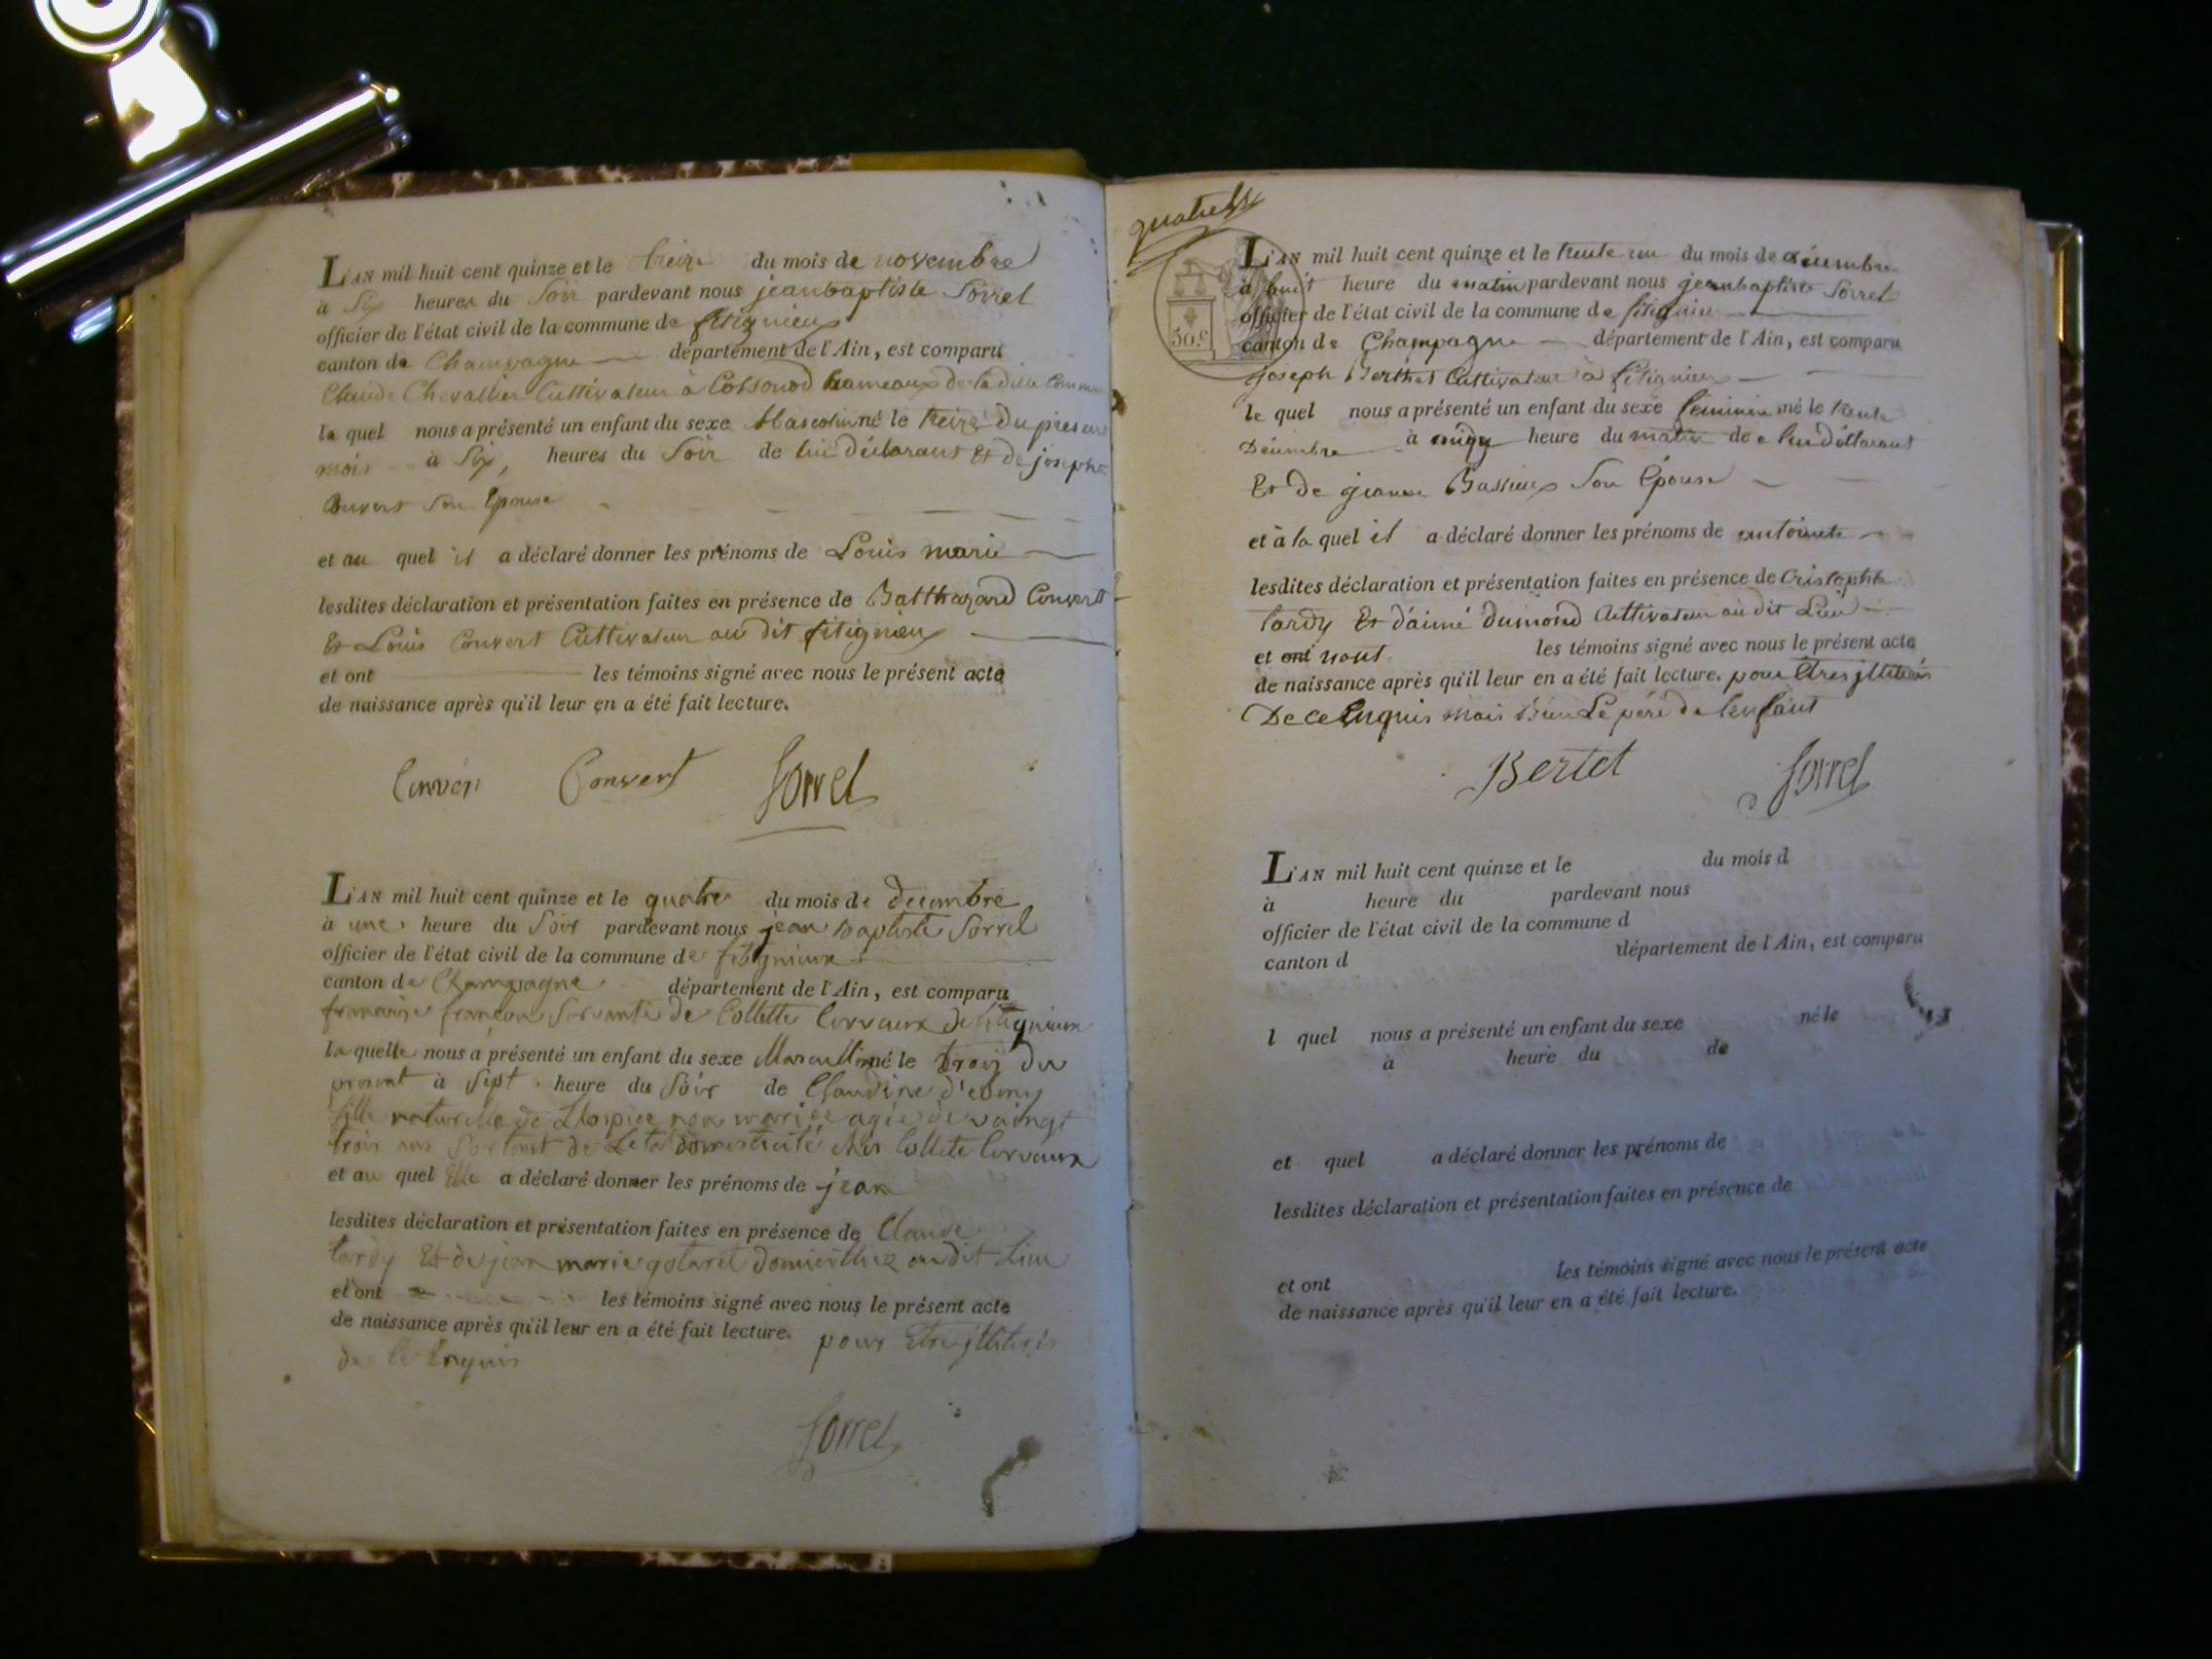 L'AN mil huit cent quinze et le treize du mois de novembre
à Six heures du Soir pardevant nous jeanbaptiste Sorrel
officier de l'état civil de la commune de fitignieux
canton de Champagne département de l'Ain, est comparu
Claude Chevallier Cultivateur à Cossonod hameaux de la dite Commune
le quel nous a présenté un enfant du sexe Masculin né le treize du present
mois à Six, heures du Soir de lui déclarant Et de josephe
Convert Son Épouse
et au quel il a déclaré donner les prénoms de Louis marie
lesdites déclaration et présentation faites en présence de Balthazard Convert
Et Louis Convert Cultivateur au dit fitignieux
et ont les témoins signé avec nous le présent acte
de naissance après qu'il leur en a été fait lecture.
Convert Sorrel
L'AN mil huit cent quinze et le quatre du mois de decembre
à une heure du Soir pardevant nous jean baptiste Sorrel
officier de l'état civil de la commune de fitignieux
canton de Champagne département de l'Ain, est comparu
francoise Servante de Collette de fitignieux
la quelle nous a présenté un enfant du sexe Masculin né le trois du
present à Sept heure du Soir de Claudine
fille naturelle de Lhospice non mariée agée de vaingt
trois ans Sortant de domesticité Collete
et au quel Elle a déclaré donner les prénoms de jean
lesdites déclaration et présentation faites en présence de Claude
tardy Et de jean marie golaret au dit Lieu
et ont les témoins signé avec nous le présent acte
de naissance après qu'il leur en a été fait lecture. pour Etre jlliteris
de Ce Enquis
Sorrel
30.c
L'AN mil huit cent quinze et le trente un du mois de décembre
à huit heure du matin pardevant nous jeanbaptiste Sorrel
officier de l'état civil de la commune de fitignieu
canton de Champagne département de l'Ain, est comparu
joseph Berthet Cultivateur à fitignieux
le quel nous a présenté un enfant du sexe féminin né le trente
Décembre à midy heure du matin de lui déclarant
Et de jeanne Bassieux Son Épouse
et à la quel il a déclaré donner les prénoms de antoinete
lesdites déclaration et présentation faites en présence de Cristophle
tardy Et d'aimé dumond Cultivateur au dit Lieu
et ont nont les témoins signé avec nous le présent acte
de naissance après qu'il leur en a été fait lecture. pour Etres jlliterés
De ce Enquis mais bien Le père de lenfant
Bertet Sorrel
L'AN mil huit cent quinze et le du mois d
à heure du pardevant nous
officier de l'état civil de la commune d
canton d département de l'Ain, est comparu
l quel nous a présenté un enfant du sexe né le
à heure du de
et quel a déclaré donner les prénoms de
lesdites déclaration et présentation faites en présence de
et ont les témoins signé avec nous le présent acte
de naissance après qu'il leur en a été fait lecture.